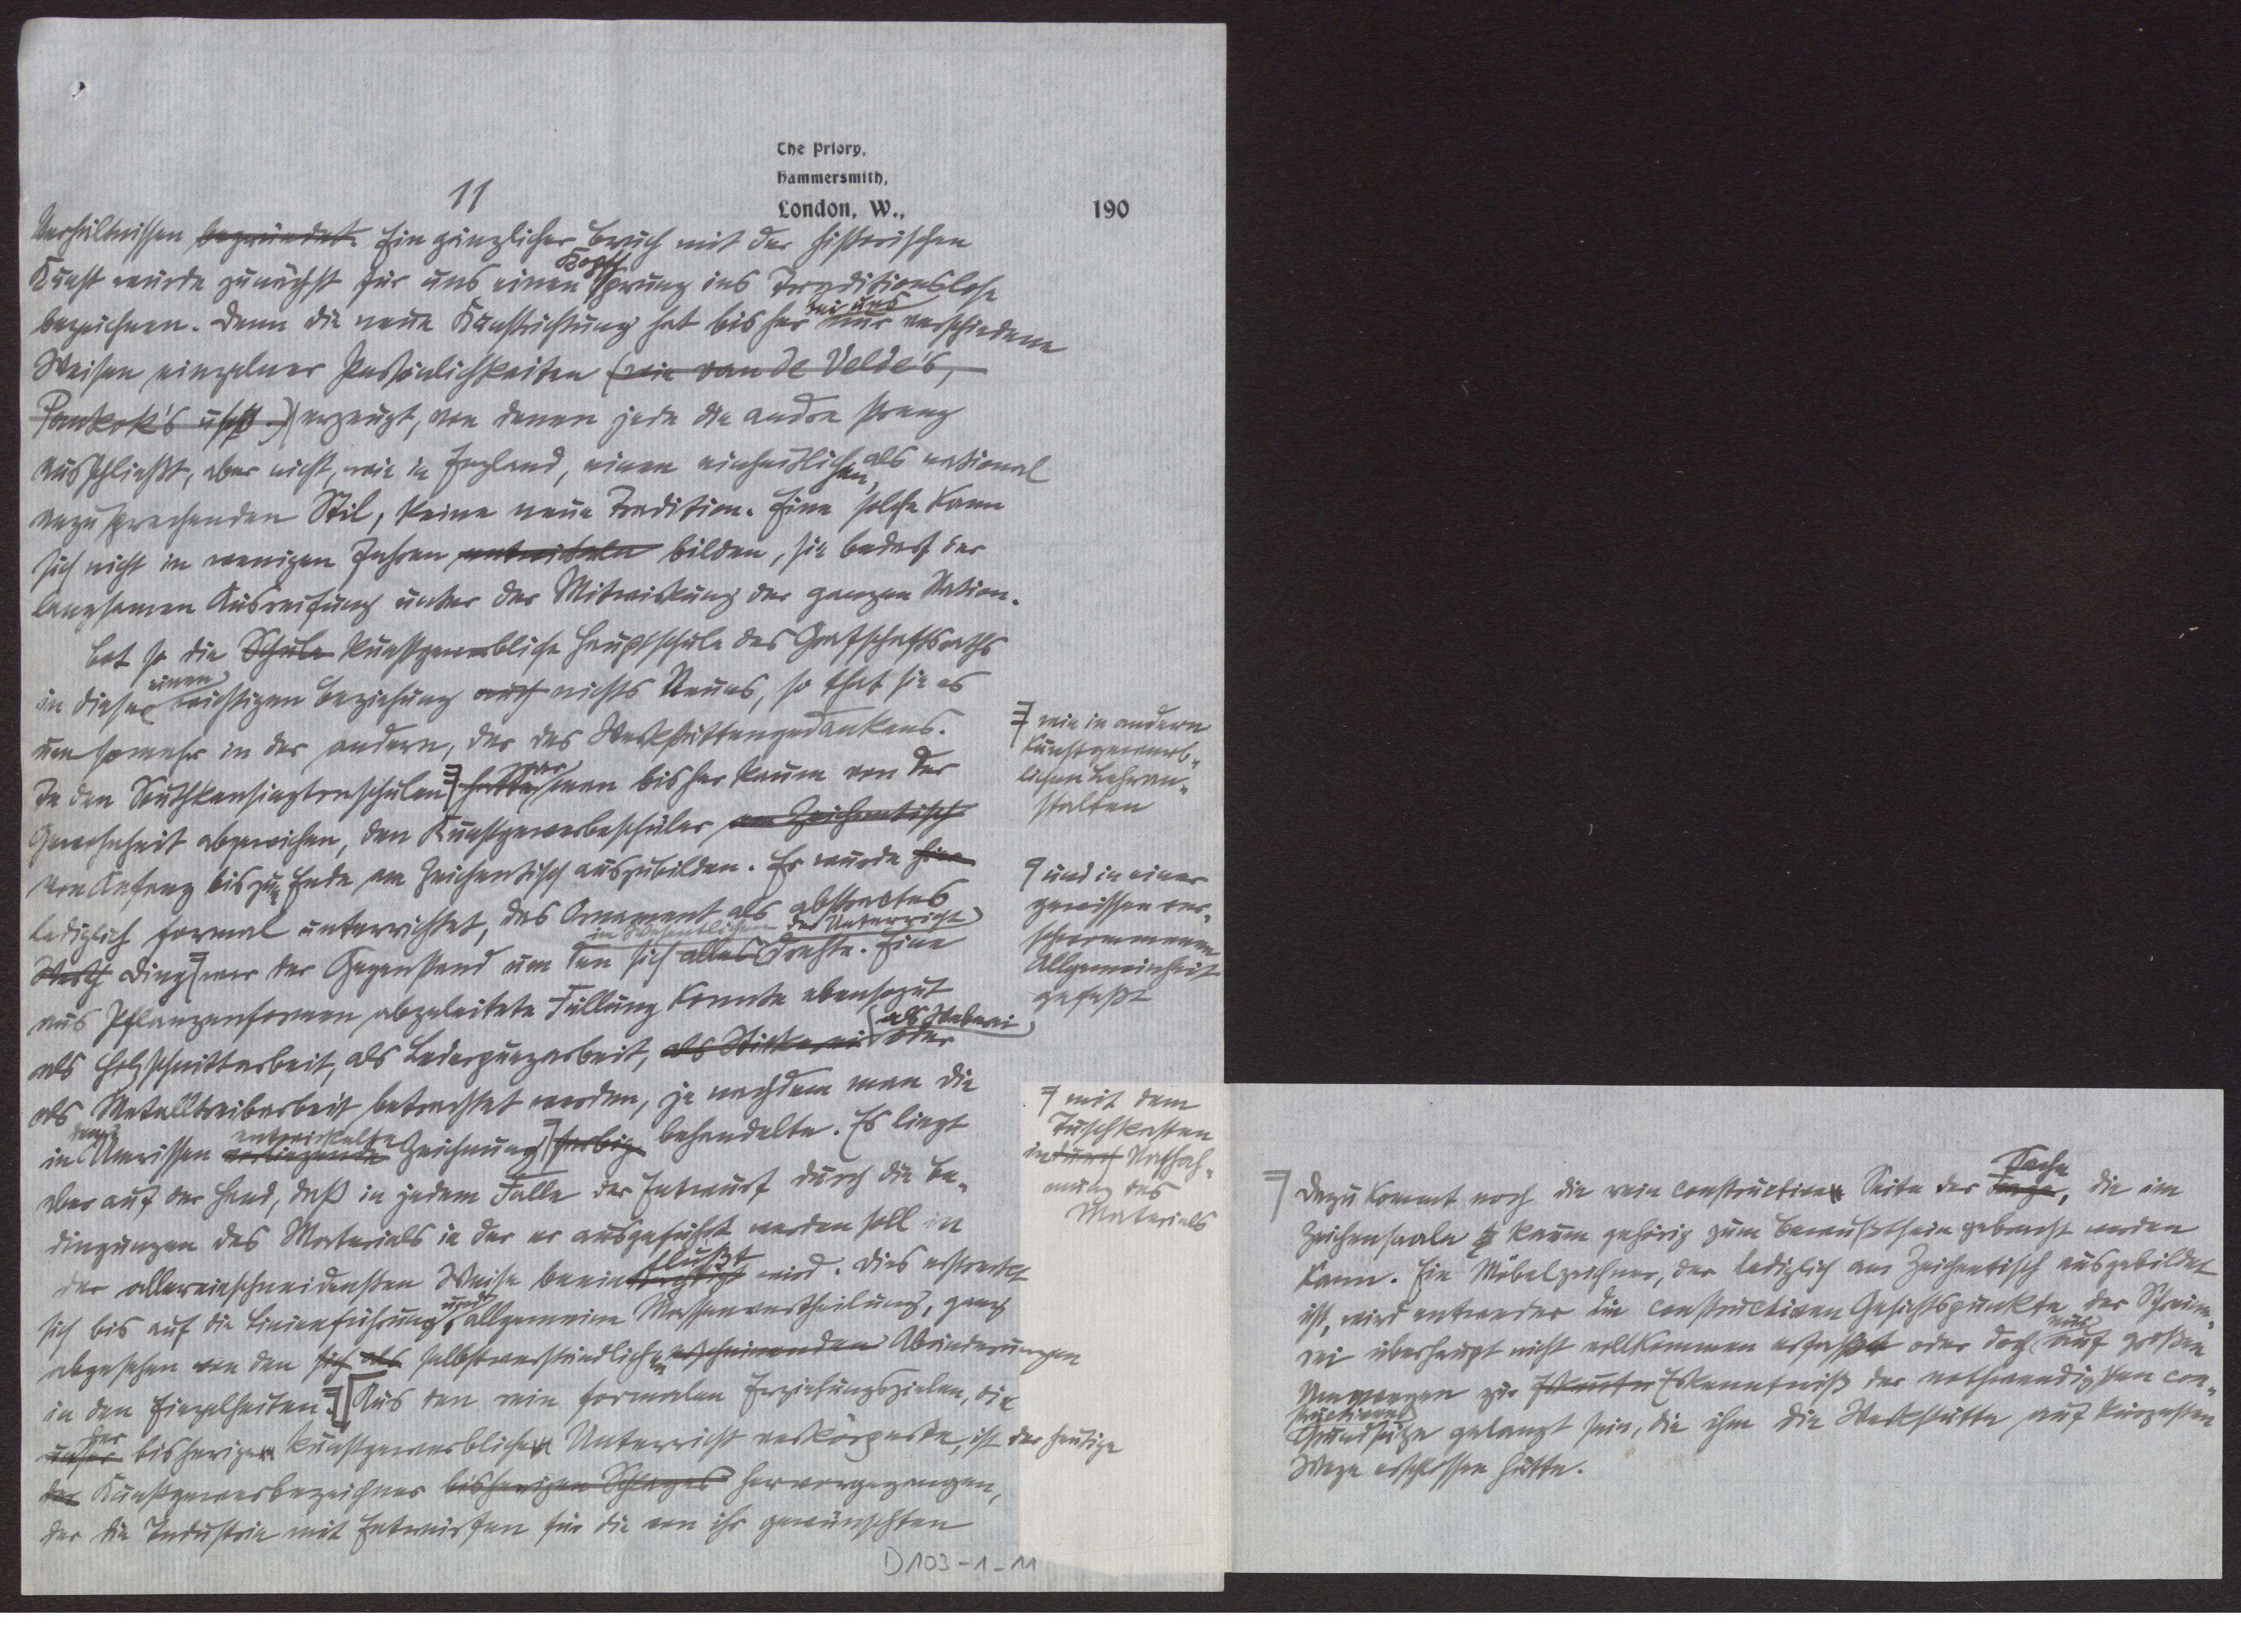 The Priory,
Hammersmith,
London, W.,
190
11
Verhältnissen begründet. Ein gänzlicher Bruch mit der historischen
Kunst würde zunächst für uns einen Kopfsprung ins Traditionslose
bezeichnen. Denn die neue Kunstrichtung hat bisher bei uns nur verschiedene
Weisen einzelner Persönlichkeiten (wie van de Velde's,
Pankok's usf.) erzeugt, von denen jede die andre streng
ausschließt, aber nicht, wie in England, einen einheitlichen, als national
anzusprechenden Stil, keine neue Tradition. Eine solche kann
sich nicht in wenigen Jahren entwickeln bilden, sie bedarf der
langsamen Ausreifung unter der Mitwirkung der ganzen Nation.
Bot so die Schule kunstgewerbliche Hauptschule des Grafschaftsraths
in dieser einen wichtigen Beziehung auch nichts Neues, so that sie es
um somehr in der andern, der des Werkstättengedankens.
In den Southkensingtonschulen hatte war man bisher kaum von der
Gewohnheit abgewichen, den Kunstgewerbeschüler am Zeichentisch
von Anfang bis zum Ende am Zeichentisch auszubilden. Er wurde hier
lediglich formal unterrichtet, das Ornament als abstractes
Ding war der Gegenstand um den sich alles im Wesentlichen der Unterricht drehte. Eine
aus Pflanzenformen abgeleitete Füllung konnte ebensogut
als Holzschnittarbeit, als Lederpunzarbeit, als Stickerei als Weberei oder
als Metalltreibarbeit betrachtet werden, je nachdem man die
in Umrissen vorliegende entwickelte Zeichnung farbig behandelte. Es liegt
aber auf der Hand, daß in jedem Falle der Entwurf durch die Be-
dingungen des Materials in der er ausgeführt werden soll in
der allereinschneidensten Weise beeinflußt wird. Dies erstreckt
sich bis auf die Linienführung und allgemeine Massenvertheilung, ganz
abgesehen von den sich als selbstverständlichen erscheinenden Abänderungen
in den Einzelheiten. Aus den rein formalen Erziehungszielen, die
unser der bisherige kunstgewerbliche Unterricht verkörperte, ist der heutige
der Kunstgewerbezeichner bisherigen Schlages hervorgegangen,
der die Industrie mit Entwürfen für die von ihr gewünschten
wie in andern
kunstgewerb-
lichen Lehran-
stalten
und in einer
gewissen ver-
schwommenen
Allgemeinheit
gefaßt
mit dem
Tuschkasten
in durch Nachah-
mung des
Materials
Dazu kommt noch die rein constructive Seite der Sache, die im
Zeichensaale kaum gehörig zum Bewußtsein gebracht werden
kann. Ein Möbelzeichner, der lediglich am Zeichentisch ausgebildet
ist, wird entweder die constructiven Gesichtspunkte der Schreine-
rei überhaupt nicht vollkommen erfaßt oder doch nur auf großen
Umwegen zur Erkenntniß der nothwendigsten con-
structiven Grundsätze gelangt sein, die ihm die Werkstätte auf kürzestem
Wege erschlossen hätte.
D103-1-11